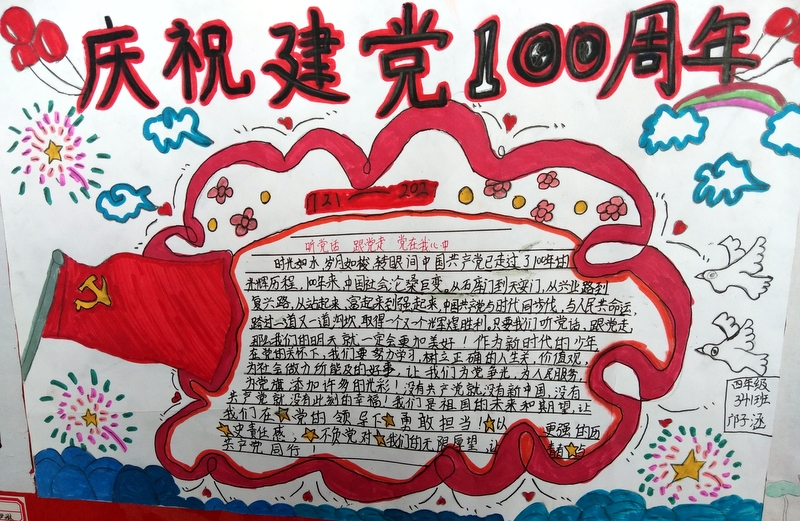 庆祝建党100周年
1921——2021
听党话 跟党走 党在我心中
时光如水,岁月如梭,转眼间中国共产党已走过了100年的
光辉历程,100年来,中国社会沧桑巨变。从石库门到天安门,从兴业路到
复兴路,从站起来,富起来到强起来,中国共产党与时代同步伐,与人民共命运,
跨过一道又一道沟坎,取得一个又一个辉煌胜利。只要我们听党话,跟党走
那么我们的明天就一定会更加美好!作为新时代的少年
在党的关怀下,我们要努力学习,树立正确的人生观,价值观,
为社会做力所能及的好事,让我们为党争光,为人民服务,
为党旗添加许多的光彩!没有共产党就没有新中国,没有
共产党就没有此刻的幸福!我们是祖国的未来和期望,让
我们在党的领导下勇敢担当!以 更强的历
史责任感,不负党对我们的无限展望,让
共产党同行!
四年级
3班
邝子涵